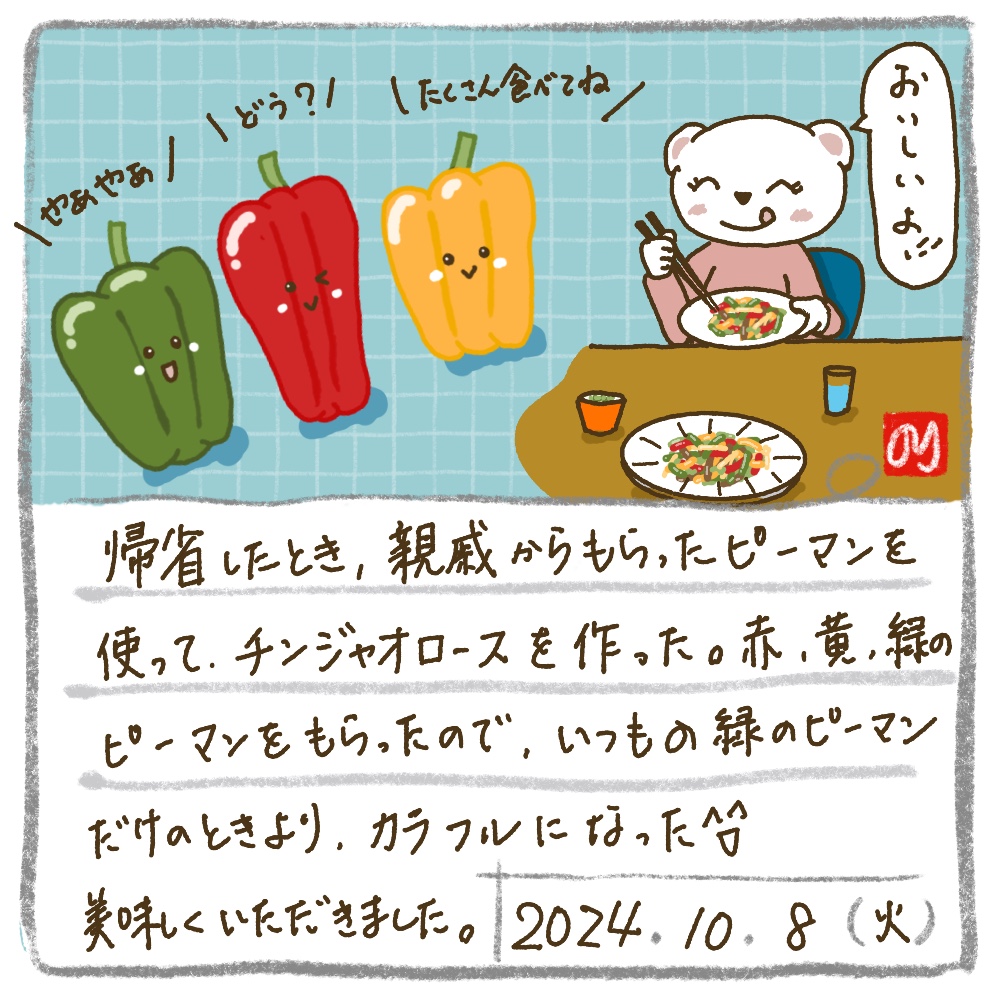 やぁやぁ
どう?
たくさん食べてね
おいしいよ!!
のり
帰省したとき,親戚からもらったピーマンを
使って.チンジャオロースを作った。赤,黄,緑の
ピーマンをもらったので,いつもの緑のピーマン
だけのときより,カラフルになった^口^
美味しくいただきました。
2024.10.8(火)